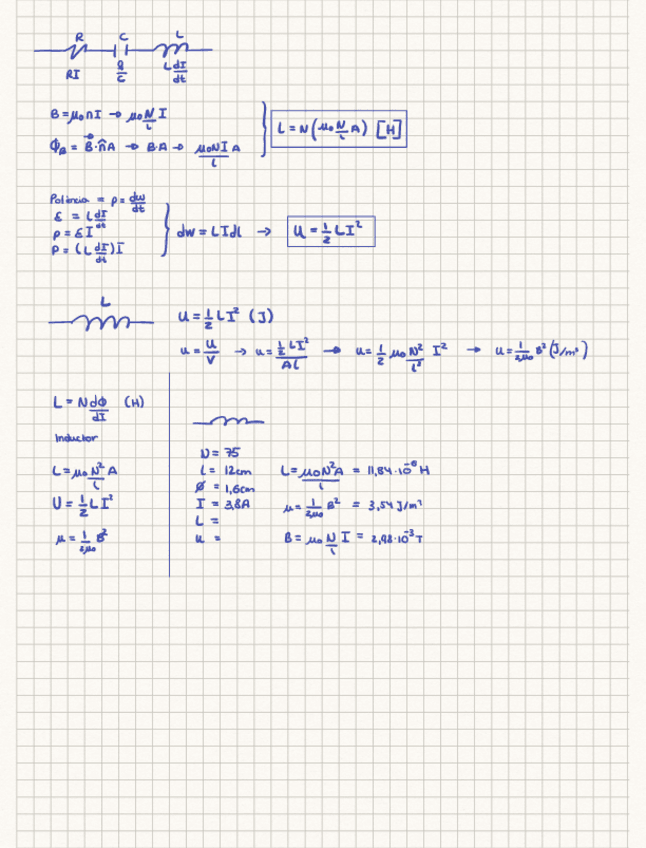 R C L
RI q/c L dI/dt
B = μ₀nI → μ₀ N/l I
Φ_B = B⃗·n̂A → B·A → μ₀NI/l A
L = N(μ₀ N/l A) [H]
Potência = p = dw/dt
ε = L dI/dt
p = εI
P = (L dI/dt)I
dw = LIdI → U = 1/2 LI²
L
U = 1/2 LI² (J)
u = U/V → u = 1/2 LI²/Al → u = 1/2 μ₀ N²/l² I² → u = 1/2μ₀ B² (J/m³)
L = N dΦ/dI (H)
Inductor
L = μ₀ N²/l A
U = 1/2 LI²
μ = 1/2μ₀ B²
N = 75
l = 12cm
Ø = 1,6cm
I = 3,8A
L =
u =
L = μ₀N²A/l = 11,84·10⁻⁶ H
μ = 1/2μ₀ B² = 3,54 J/m³
B = μ₀ N/l I = 2,98·10⁻³ T